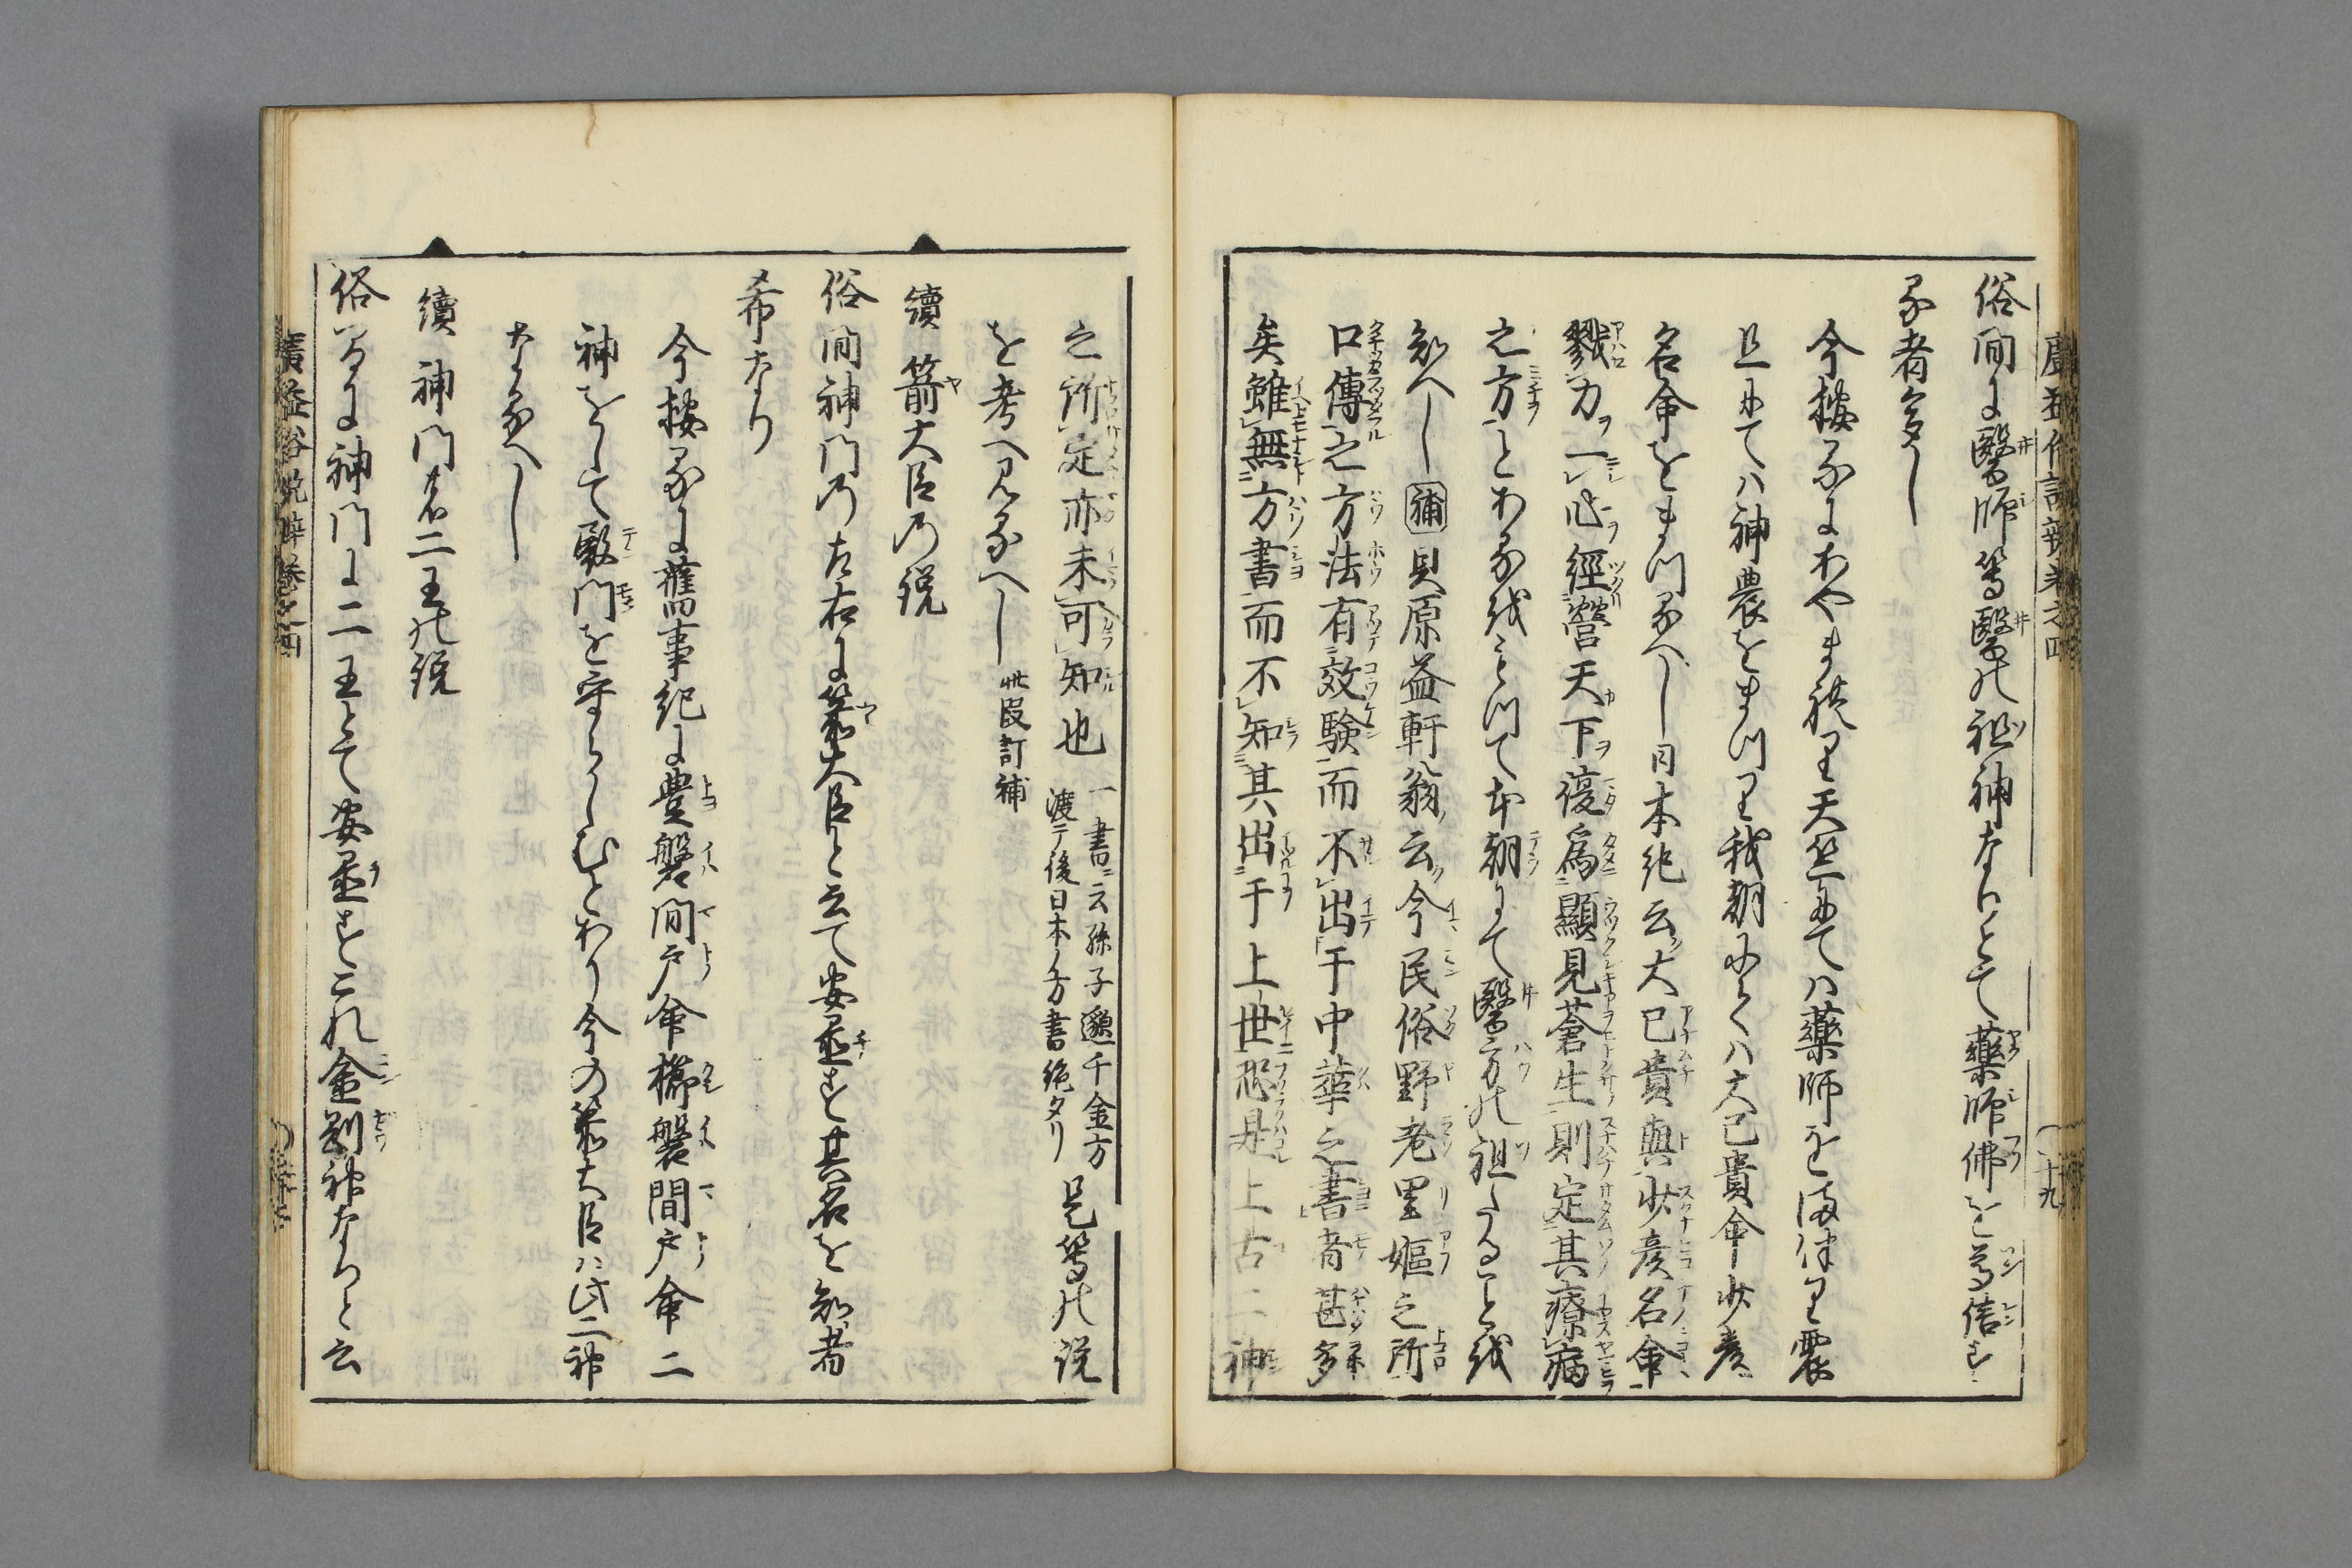 俗間に醫師等醫の祖神なりとて藥師佛を尊信す
る者多し
今按るにあやまれり天竺にては藥師をまつり震
旦にては神農をまつり我朝にては大已貴命少彦
名命をまつるへし日本紀云大已貴與少彦名命
戮力一心經營天下復爲顯見蒼生則定其療病
之方とある或をもつて本朝にて醫方の祖たること或
知へし補貝原益軒翁云今民俗野老里嫗之所
口傳之方法有效驗而不出于中華之書者甚多
矣雖無方書而不知其出于上世恐是上古二神
之所定亦未可知也一書ニ云孫子邈千金方渡テ後日本ノ方書絶タリ是等の説
を考へ見るへし此段訂補
續箭大臣乃説
俗間神門乃左右に箭大臣と云て安置す其名を知者
希なり
今按るに舊事紀に豊磐間戸命櫛磐間戸命二
神をして殿門を守らしむとあり今の箭大臣ハ此二神
なるへし
續神門の二王の説
俗間に神門に二王とて安置すこれ金剛神なりと云
廣益俗説辨巻之四
十九